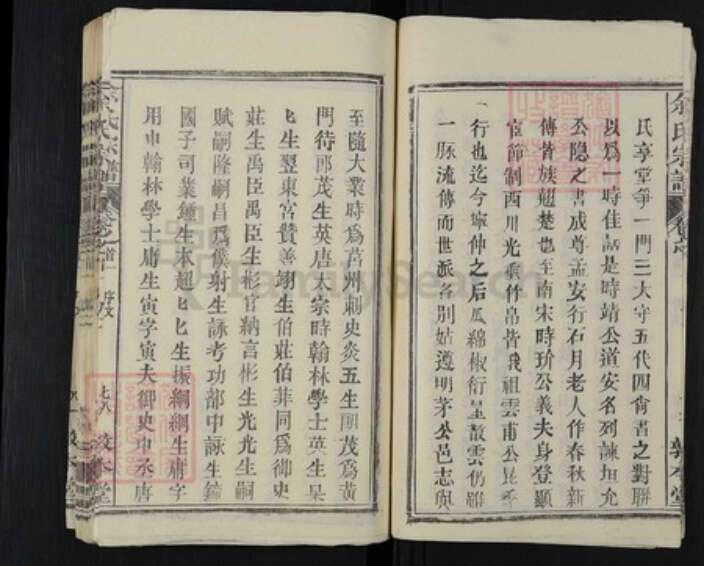 余氏宗譜
民享堂爭一門三大守五代四尙書之對聯
以爲一時佳話是時靖公道安名列諫垣允
公隱之書成尊孟安行石月老人作春秋新
傳皆族翹楚也至南宋時玠公義夫身登顯
宦節制西川光竹帛皆我祖雲甫公
行也迄今寧伸之后瓜綿椒衍星散雲仍雖
一脉流傳而世派各別姑遵明茅公邑志與
至隨大業時爲莒州刺史炎五生朋茂爲黃
門待郎茂生英唐太宗時翰林學士英生杲
匕生翌東宮贊善翊生伯莊伯菲同爲御史
莊生禹臣禹臣生彬官納言彬生光光生嗣
賦嗣隆嗣昌爲僕射生詠考功部中詠生鐘
國子司業鍾生本超匕匕生振綱綱生庸字
用中翰林學士庸生寅字寅夫御史中丞唐
余氏宗譜
首一
序文
七八
敦本堂
FamilySearch